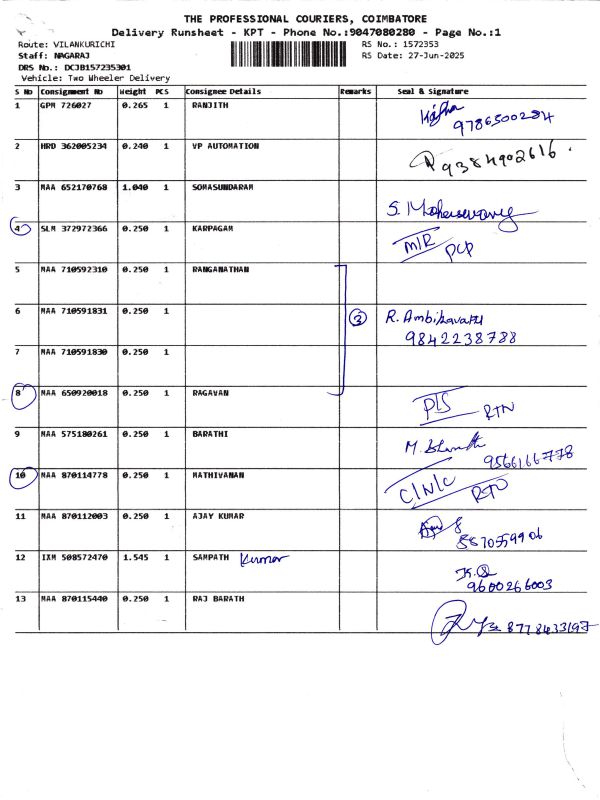 THE PROFESSIONAL COURIERS, COIMBATORE
Delivery Runsheet - KPT - Phone No.:9047080280 - Page No.:1
Route: VILANKURICHI
RS No.: 1572353
Staff: NAGARAJ
RS Date: 27-Jun-2025
DRS No.: DCJB157235301
Vehicle: Two Wheeler Delivery
S No Consignment No Weight PCS Consignee Details Remarks Seal & Signature
1 GPM 726027 0.265 1 RANJITH
9786500284
2 HRD 362005234 0.240 1 VP AUTOMATION 9384902616.
3 MAA 652170768 1.040 1 SOMASUNDARAM
S.
4 SLM 372972366 0.250 1 KARPAGAM
5 MAA 710592310 0.250 1 RANGANATHAN
6 MAA 710591831 0.250 1 3 R. Ambikavathi
9842238788
7 MAA 710591830 0.250 1
8 MAA 650920018 0.250 1 RAGAVAN
RTN
9 MAA 575180261 0.250 1 BARATHI
M. 9566166778
10 MAA 870114778 0.250 1 MATHIVANAN
RTO
11 MAA 870112003 0.250 1 AJAY KUMAR
12 IXM 508572470 1.545 1 SAMPATH Kumar
9600266003
13 MAA 870115440 0.250 1 RAJ BARATH
8778433197